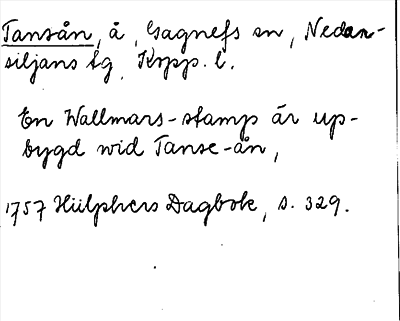 Tansån, å, Gagnefs sn, Nedan-
siljans fg, Kopp. l.
En Wallmars-stamp är up-
bygd wid Tanse-ån,
1757 Hülphers Dagbok, s. 329.